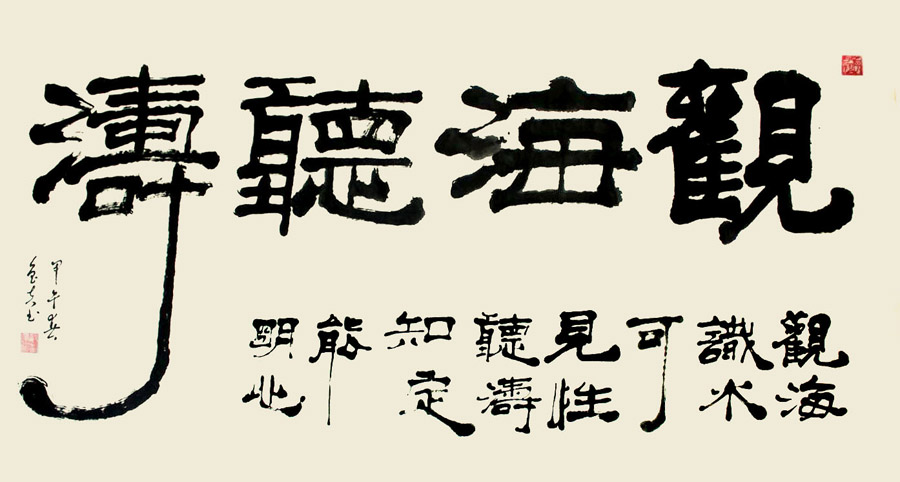 觀海聽濤
觀海
識水
可
見性
聽濤
知定
能
明心
甲午春